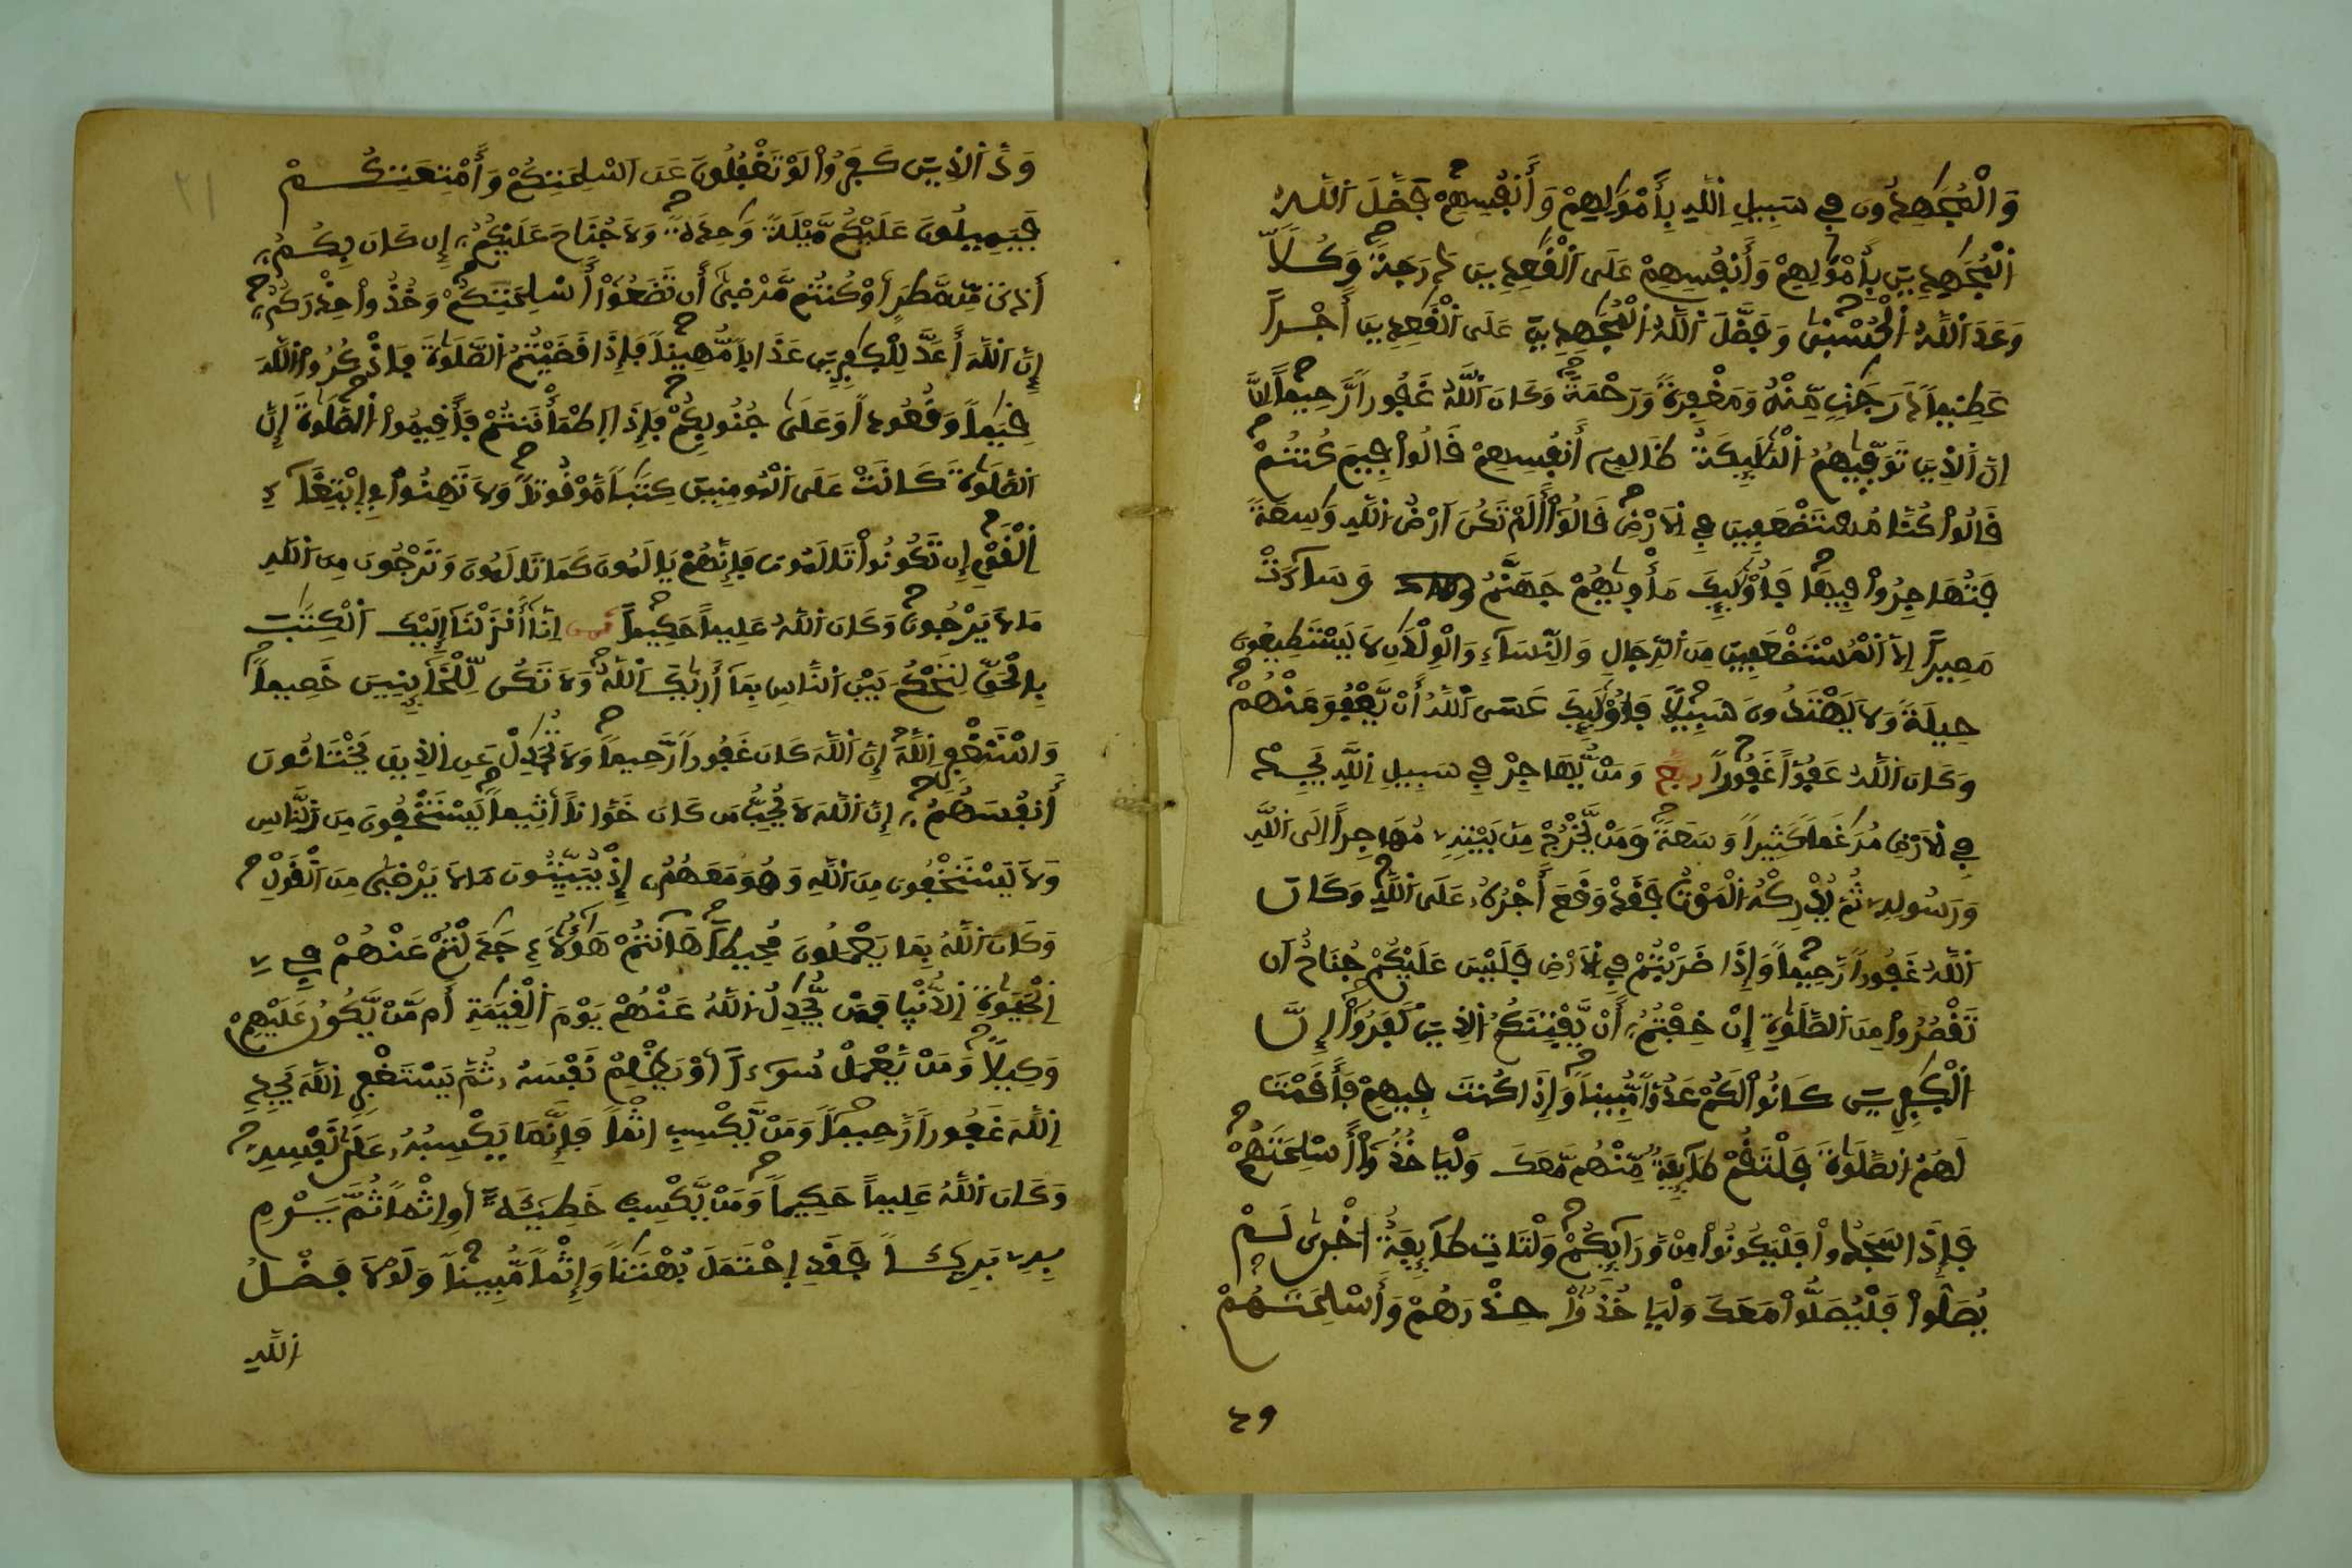 وَالْمُجَٰهِدُونَ فِي سَبِيلِ اِللَّهِ بِأَمْوَٰلِهِمْ وَأَنفُسِهِمْ فَضَّلَ اَللَّهُ
اُلْمُجَٰهِدِينَ بِأَمْوَٰلِهِمْ وَأَنفُسِهِمْ عَلَى اَلْقَٰعِدِينَ دَرَجَةً وَكُلّاً
وَعَدَ اَللَّهُ اُلْحُسْنىٰ وَفَضَّلَ اَللَّهُ اُلْمُجَٰهِدِينَ عَلَى اَلْقَٰعِدِينَ أَجْراً
عَظِيماً دَرَجَٰتٍ مِّنْهُ وَمَغْفِرَةً وَرَحْمَةً وَكَانَ اَللَّهُ غَفُوراً رَّحِيماً
اِنَّ اَلذِينَ تَوَفّيٰهُمُ اُلْمَلَٰٓئِكَةُ ظَالِمِے أَنفُسِهِمْ قَالُواْ فِيمَ كُنتُمْ
قَالُواْ كُنَّا مُسْتَضْعَفِينَ فِي اِلَارْضِ قَالُوٓاْ أَلَمْ تَكُنَ اَرْضُ اُللَّهِ وَٰسِعَةً
فَتُهَاجِرُواْ فِيهَا فَأُوْلَٰٓئِكَ مَأْويٰهُمْ جَهَنَّمُ وَسَآءَتْ
مَصِيراً اِلَّا اَلْمُسْتَضْعَفِينَ مِنَ اَلرِّجَالِ وَالنِّسَآءِ وَالْوِلْدَٰنِ لَا يَسْتَطِيعُونَ
حِيلَةً وَلَا يَهْتَدُونَ سَبِيلاً فَأُوْلَٰٓئِكَ عَسَى اَللَّهُ أَنْ يَّعْفُوَ عَنْهُمْ
وَكَانَ اَللَّهُ عَفُوّاً غَفُوراً ربع وَمَنْ يُّهَاجِرْ فِي سَبِيلِ اِللَّهِ يَجِدْ
فِي اِلَارْضِ مُرَٰغَماً كَثِيراً وَسَعَةً وَمَنْ يَّخْرُجْ مِنۢ بَيْتِهِۦ مُهَاجِراً اِلَى اَللَّهِ
وَرَسُولِهِۦ ثُمَّ يُدْرِكْهُ اُلْمَوْتُ فَقَد وَّقَعَ أَجْرُهُۥ عَلَى اَللَّهِ وَكَانَ
اَللَّهُ غَفُوراً رَّحِيماً وَإِذَا ضَرَبْتُمْ فِي اِلَارْضِ فَلَيْسَ عَلَيْكُمْ جُنَاحٌ اَن
تَقْصُرُواْ مِنَ اَلصَّلَوٰةِ إِنْ خِفْتُمُۥٓ أَنْ يَّفْتِنَكُمُ اُلذِينَ كَفَرُوٓاْ إِنَّ
اَلْكَٰفِرِينَ كَانُواْ لَكُمْ عَدُوّاً مُّبِيناً وَإِذَا كُنتَ فِيهِمْ فَأَقَمْتَ
لَهُمُ اُلصَّلَوٰةَ فَلْتَقُمْ طَآئِفَةٌ مِّنْهُم مَّعَكَ وَلْيَاخُذُوٓاْ أَسْلِحَتَهُمْ
فَإِذَا سَجَدُواْ فَلْيَكُونُواْ مِنْ وَّرَآئِكُمْ وَلْتَاتِ طَآئِفَةٌ اُخْرىٰ لَمْ
يُصَلُّواْ فَلْيُصَلُّواْ مَعَكَ وَلْيَاخُذُواْ حِذْرَهُمْ وَأَسْلِحَتَهُمْ
٢١
وَدَّ اَلذِينَ كَفَرُواْ لَوْ تَغْفُلُونَ عَنَ اَسْلِحَتِكُمْ وَأَمْتِعَتِكُمْ
فَيَمِيلُونَ عَلَيْكُم مَّيْلَةً وَٰحِدَةً وَلَا جُنَاحَ عَلَيْكُمُۥٓ إِن كَانَ بِكُمُۥٓ
أَذىً مِّن مَّطَرٍ اَوْ كُنتُم مَّرْضىٰٓ أَن تَضَعُوٓاْ أَسْلِحَتَكُمْ وَخُذُواْ حِذْرَكُمُۥٓ
إِنَّ اَللَّهَ أَعَدَّ لِلْكَٰفِرِينَ عَذَاباً مُّهِيناً فَإِذَا قَضَيْتُمُ اُلصَّلَوٰةَ فَاذْكُرُواْ اُللَّهَ
قِيَٰماً وَقُعُوداً وَعَلَىٰ جُنُوبِكُمْ فَإِذَا اَطْمَأْنَنتُمْ فَأَقِيمُواْ اُلصَّلَوٰةَ إِنَّ
اَلصَّلَوٰةَ كَانَتْ عَلَى اَلْمُومِنِينَ كِتَٰباً مَّوْقُوتاً وَلَا تَهِنُواْ فِي اِبْتِغَآءِ
اِلْقَوْمِ إِن تَكُونُواْ تَالَمُونَ فَإِنَّهُمْ يَالَمُونَ كَمَا تَالَمُونَ وَتَرْجُونَ مِنَ اَللَّهِ
مَا لَا يَرْجُونَ وَكَانَ اَللَّهُ عَلِيماً حَكِيماً ثمن اِنَّآ أَنزَلْنَآ إِلَيْكَ اَلْكِتَٰبَ
بِالْحَقِّ لِتَحْكُمَ بَيْنَ اَلنَّاسِ بِمَآ أَريٰكَ اَللَّهُ وَلَا تَكُن لِّلْخَآئِنِينَ خَصِيماً
وَاسْتَغْفِرِ اِللَّهَ إِنَّ اَللَّهَ كَانَ غَفُوراً رَّحِيماً وَلَا تُجَٰدِلْ عَنِ اِلذِينَ يَخْتَانُونَ
أَنفُسَهُمُۥٓ إِنَّ اَللَّهَ لَا يُحِبُّ مَن كَانَ خَوَّاناً اَثِيماً يَسْتَخْفُونَ مِنَ اَلنَّاسِ
وَلَا يَسْتَخْفُونَ مِنَ اَللَّهِ وَهُوَ مَعَهُمُۥٓ إِذْ يُبَيِّتُونَ مَا لَا يَرْضىٰ مِنَ اَلْقَوْلِ
وَكَانَ اَللَّهُ بِمَا يَعْمَلُونَ مُحِيطاً هَآنتُمْ هَٰٓؤُلَآءِ جَٰدَلْتُمْ عَنْهُمْ فِي
اِلْحَيَوٰةِ اِلدُّنْيا فَمَنْ يُّجَٰدِلُ اُللَّهَ عَنْهُمْ يَوْمَ اَلْقِيَٰمَةِ أَم مَّنْ يَّكُونُ عَلَيْهِمْ
وَكِيلاً وَمَنْ يَّعْمَلْ سُوٓءاً اَوْ يَظْلِمْ نَفْسَهُۥ ثُمَّ يَسْتَغْفِرِ اِللَّهَ يَجِدِ
اِللَّهَ غَفُوراً رَّحِيماً وَمَنْ يَّكْسِبِ اِثْماً فَإِنَّمَا يَكْسِبُهُۥ عَلَىٰ نَفْسِهِۦ
وَكَانَ اَللَّهُ عَلِيماً حَكِيماً وَمَنْ يَّكْسِبْ خَطِيٓـَٔةً اَوِ اِثْماً ثُمَّ يَرْمِ
بِهِۦ بَرِيٓـٔاً فَقَدِ اِحْتَمَلَ بُهْتَٰناً وَإِثْماً مُّبِيناً وَلَوْلَا فَضْلُ
اُللَّهِ